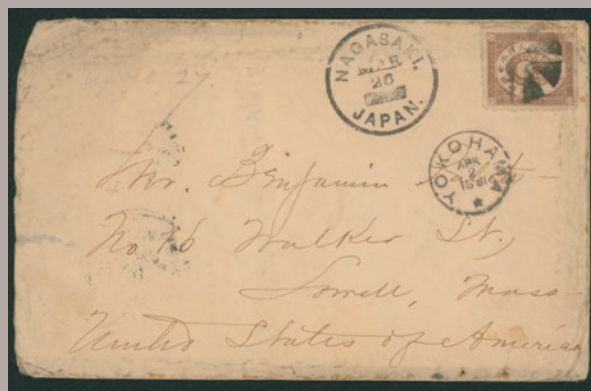 NAGASAKI.
MAR
26
JAPAN.
YOKOHAMA
APR
2
Mr. Benjamin
No 16 Walker St,
Lowell, Mass
United States of America